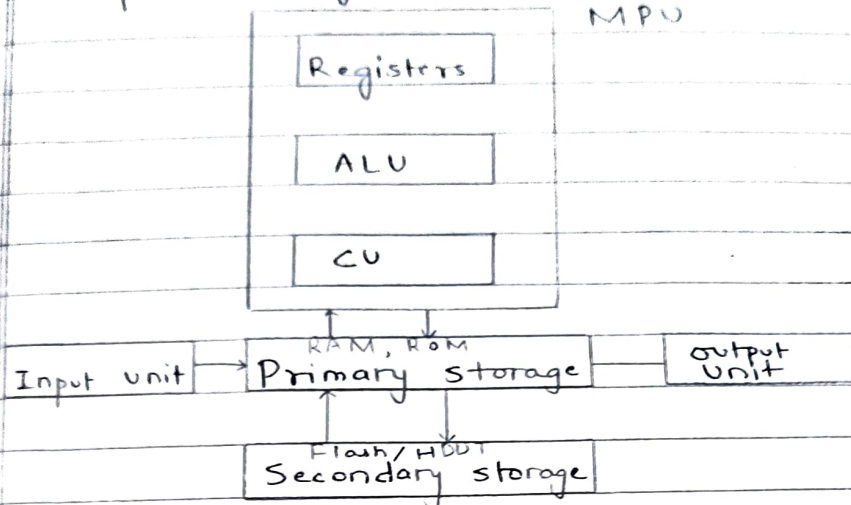 MPU
Registers
ALU
CU
RAM, ROM
Input unit
Primary storage
output
unit
Flash/
Secondary storage